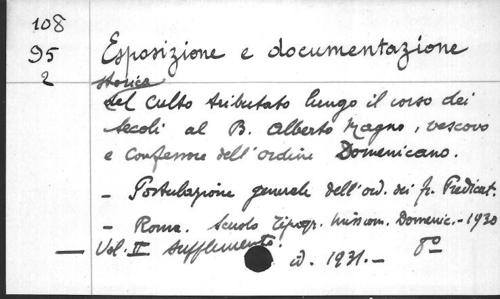 108
95
2
Esposizione e documentazione
storica
del Culto tributato lungo il corso dei
secoli al B. Alberto Magno, vescovo
e Confessore dell'ordine Domenicano.
- Postulazione generale dell'ord. dei fr. Predicat.
- Roma. Scuola Tipogr. missiom. Domenic. - 1930
— Vol. II Supplemento. id. 1931. - 8°